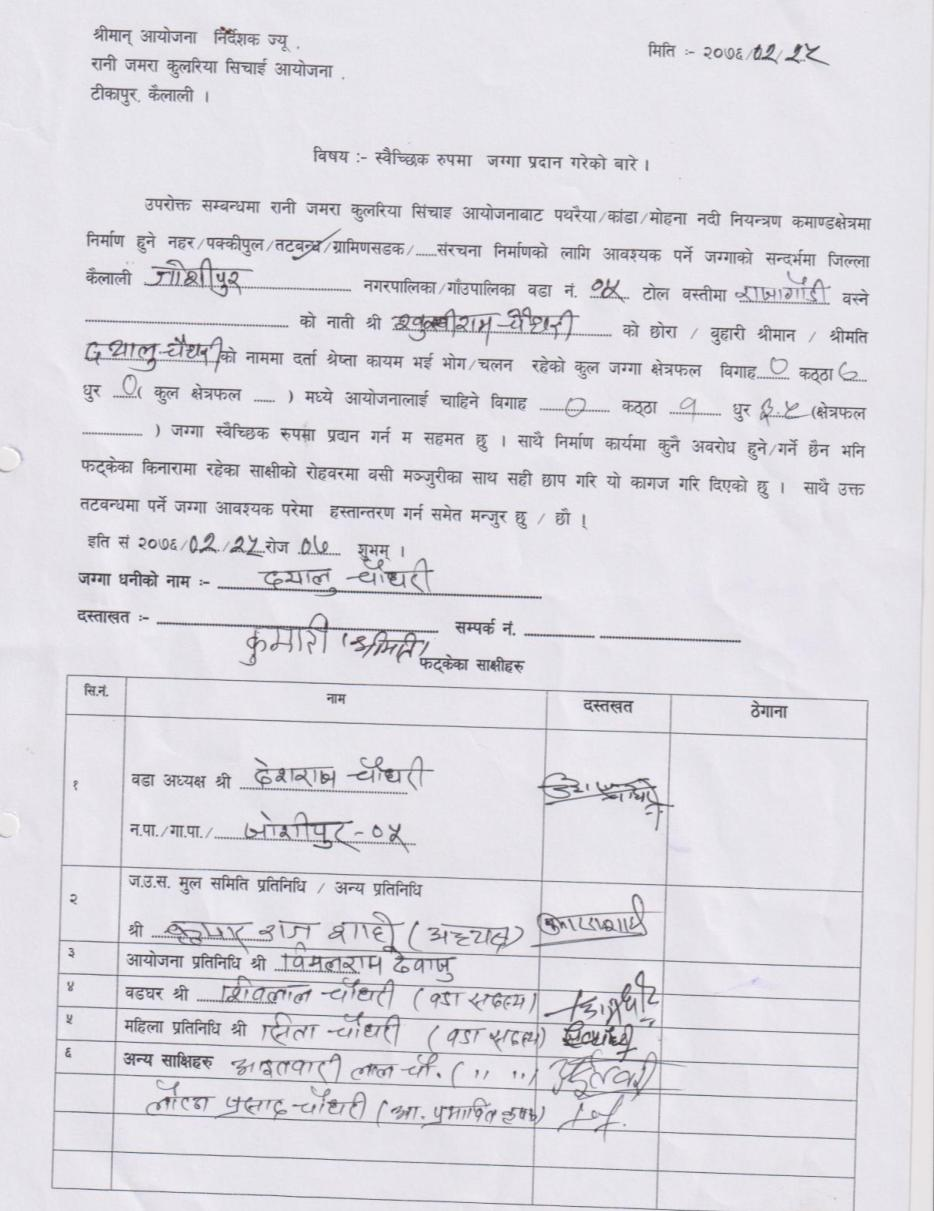 श्रीमान् आयोजना निर्देशक ज्यू ,
मिति :- २०७६/02/25
रानी जमरा कुलरिया सिचाई आयोजना ,
टीकापुर, कैलाली ।
विषय :- स्वैच्छिक रुपमा जग्गा प्रदान गरेको बारे ।
उपरोक्त सम्बन्धमा रानी जमरा कुलरिया सिंचाइ आयोजनावाट पथरैया/कांडा/मोहना नदी नियन्त्रण कमाण्डक्षेत्रमा
निर्माण हुने नहर/पक्कीपुल/तटवन्ध/ग्रामिणसडक/......संरचना निर्माणको लागि आवश्यक पर्ने जग्गाको सन्दर्भमा जिल्ला
कैलाली जोशीपुर नगरपालिका/गाँउपालिका वडा नं. ०५ टोल वस्तीमा वस्ने
को नाती श्री चौधरी को छोरा / बुहारी श्रीमान / श्रीमति
दयालु चौधरी को नाममा दर्ता श्रेप्ता कायम भई भोग/चलन रहेको कुल जग्गा क्षेत्रफल विगाह 0 कठ्ठा ६
धुर 0 ( कुल क्षेत्रफल ...... ) मध्ये आयोजनालाई चाहिने विगाह 0 कठ्ठा १ धुर (क्षेत्रफल
................ ) जग्गा स्वैच्छिक रुपमा प्रदान गर्न म सहमत छु । साथै निर्माण कार्यमा कुनै अवरोध हुने/गर्ने छैन भनि
फट्केका किनारामा रहेका साक्षीको रोहवरमा वसी मञ्जुरीका साथ सही छाप गरि यो कागज गरि दिएको छु । साथै उक्त
तटवन्धमा पर्ने जग्गा आवश्यक परेमा हस्तान्तरण गर्न समेत मन्जुर छु / छौ ।
इति सं २०७६/02/25 रोज शुभम् ।
जग्गा धनीको नाम :- दयालु चौधरी
दस्ताखत :- सम्पर्क नं.
कुमारी (श्रीमती)
फट्केका साक्षीहरु
सि.नं. नाम दस्तखत ठेगाना
१ वडा अध्यक्ष श्री देशराज चौधरी
न.पा./गा.पा./ जोशीपुर-०५
२ ज.उ.स. मुल समिति प्रतिनिधि / अन्य प्रतिनिधि
श्री कुमार राज शाही (अध्यक्ष)
३ आयोजना प्रतिनिधि श्री विमलराम देवाजु
४ वडघर श्री शिवलाल चौधरी (वडा सदस्य)
५ महिला प्रतिनिधि श्री सिता चौधरी (वडा सदस्य)
६ अन्य साक्षिहरु आइतवारी लाल चौ. ( ,, ,, )
प्रसाद चौधरी (आ. प्रभावित कृषक)